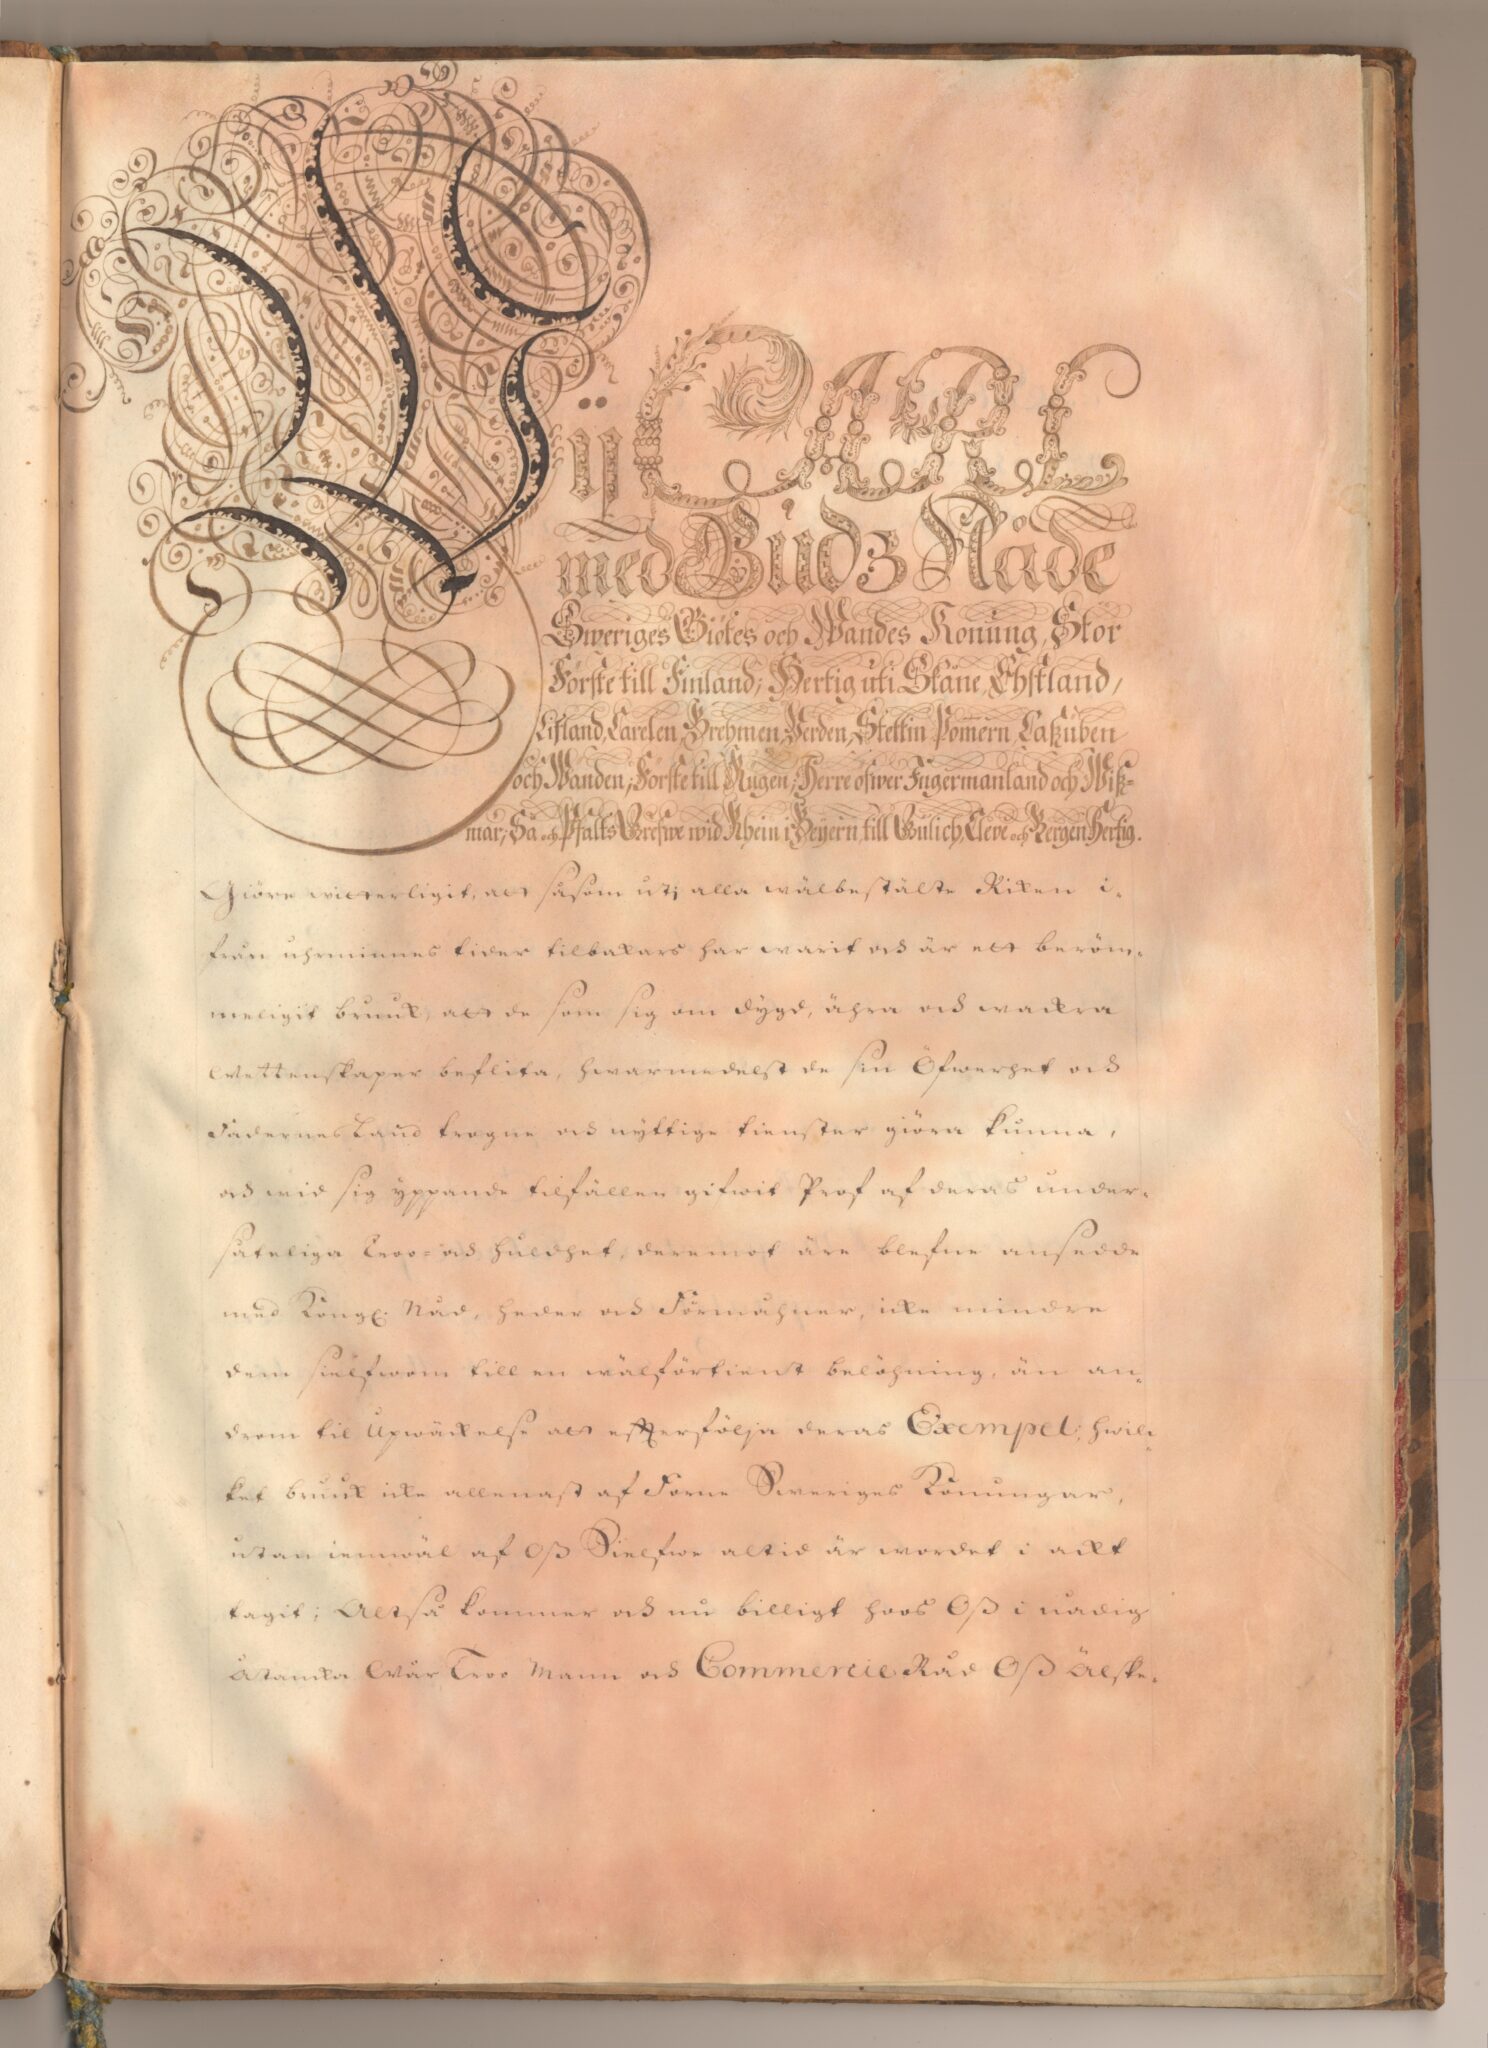 Wÿ CARL
med Gudz Nåde
Sweriges Giötes och Wandes Konung, Stor
Förste till Finland, Hertig uti Skåne, Ehstland,
Lifland, Carelen, Brehmen, Verden, Stettin Pomern, Caßuben
och Wanden, Förste till Rügen, Herre öfwer Ingermanland och Wiß-
mar, Så och Pfaltz Grefwe wid Rhein i Beyern, till Gülich, Cleve och Bergen Hertig.
Giöre witterligit, att såsom utj alla wälbestälte Riken i-
från uhrminnes tider tilbakars har warit och är ett beröm-
meligit bruuk, att de som sig om dygd, ähra och wackra
Wettenskaper beflita, hwarmedelst de sin Öfwerhet och
Fädernes Land trogne och nÿttige tienster giöra kunna,
och wid sig ÿppande tilfällen gifwit Prof af deras under-
såteliga Troo- och huldhet, deremot äre blefne ansedde
med Kongl. Nåd, heder och Förmåhner, icke mindre
dem sielfwom till en wälförtient belöhning, än an-
drom til Upwäckelse att efterfölja deras Exempel; hwil-
ket bruuk icke allenast af Forne Sweriges Konungar,
utan iemwäl af Oß Sielfwe altid är wordet i ackt
tagit; Altså kommer och nu billigt hoos Oß i nådig
åtancka Wår Troo Mann och Commercie Råd Oß Älske-